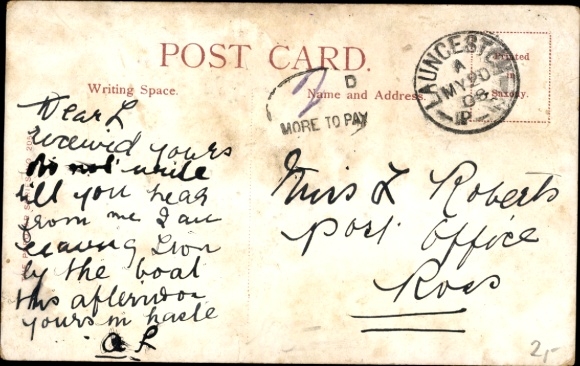 POST CARD.
Writing Space.
Name and Address.
Printed
Saxony.
LAUNCESTON
A
MY 20
08
P
2 D
MORE TO PAY
Dear L
received yours
do not write
till you hear
from me I am
leaving
by the boat
this afternoon
yours in haste
Miss L Roberts
Post Office
Ross
2,-